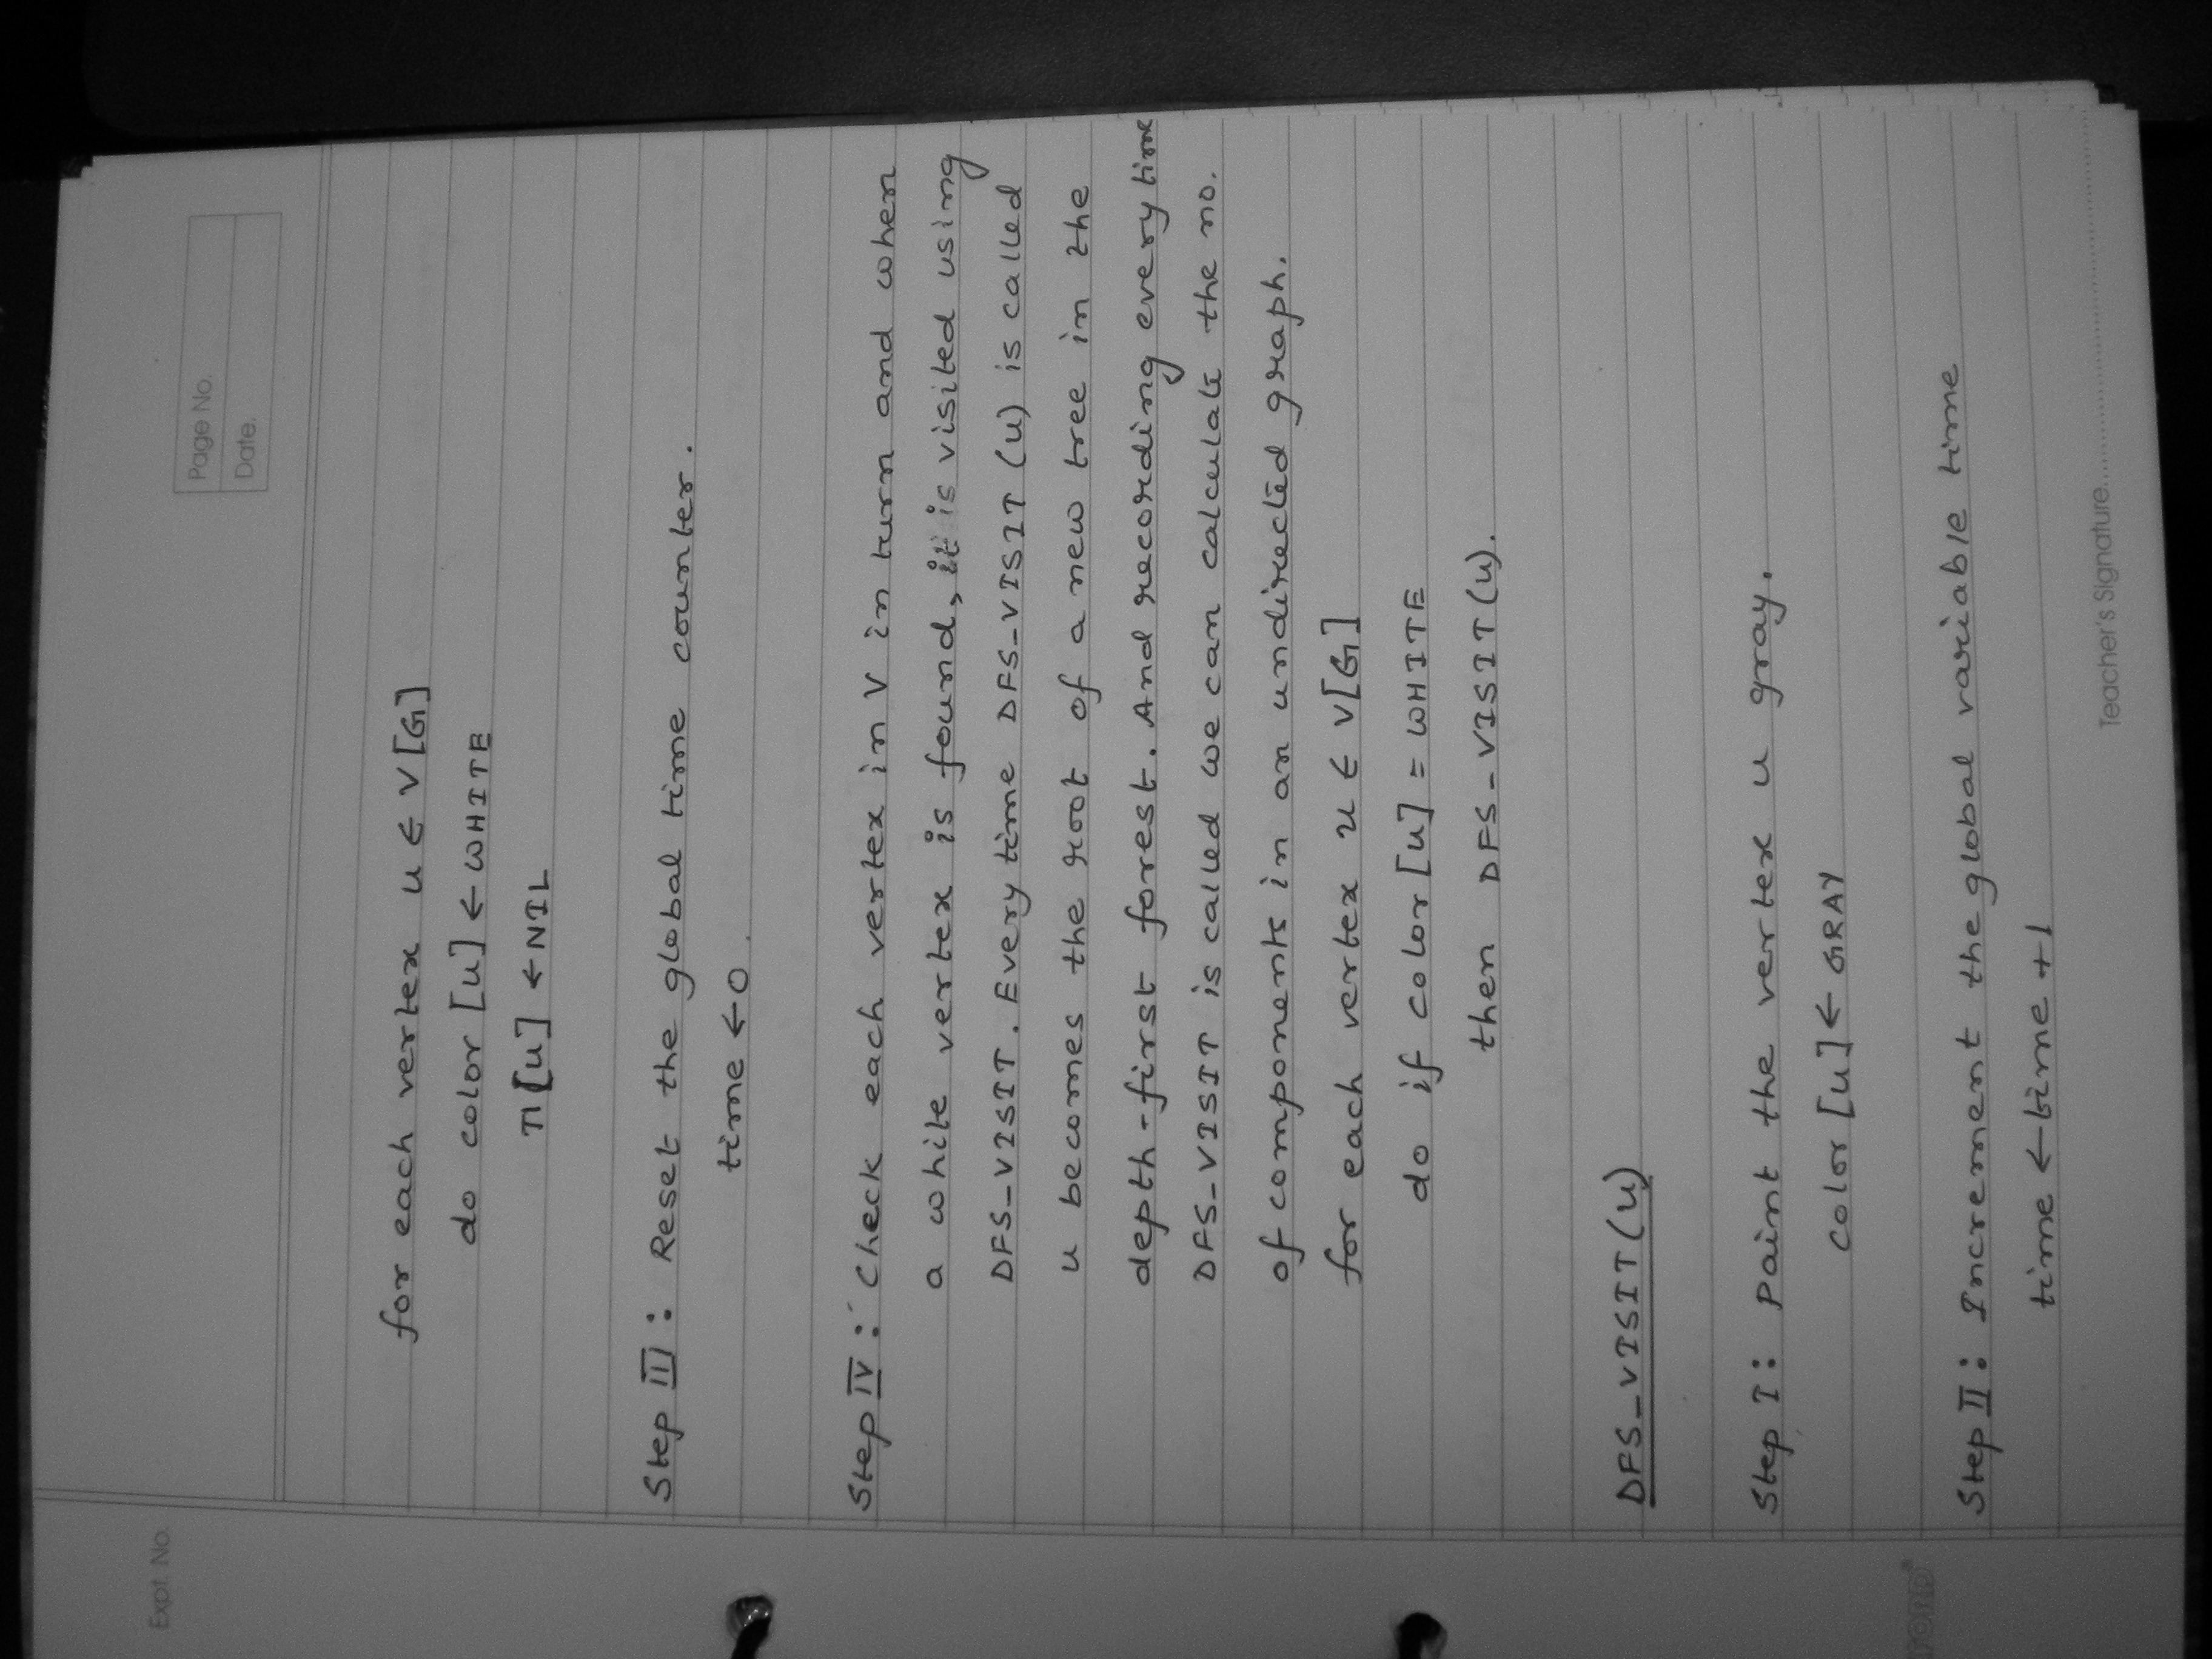 Expt. No.
Page No.
Date.
for each vertex u ∈ V[G]
do color [u] ← WHITE
π[u] ← NIL
Step III : Reset the global time counter.
time ← 0.
Step IV : Check each vertex in V in turn and when
a white vertex is found, it is visited using
DFS_VISIT. Every time DFS_VISIT (u) is called
u becomes the root of a new tree in the
depth-first forest. And recording every time
DFS_VISIT is called we can calculate the no.
of components in an undirected graph.
for each vertex u ∈ V[G]
do if color [u] = WHITE
then DFS_VISIT(u).
DFS_VISIT(u)
Step I : Paint the vertex u gray.
color [u] ← GRAY
Step II : Increment the global variable time
time ← time + 1
Teacher's Signature